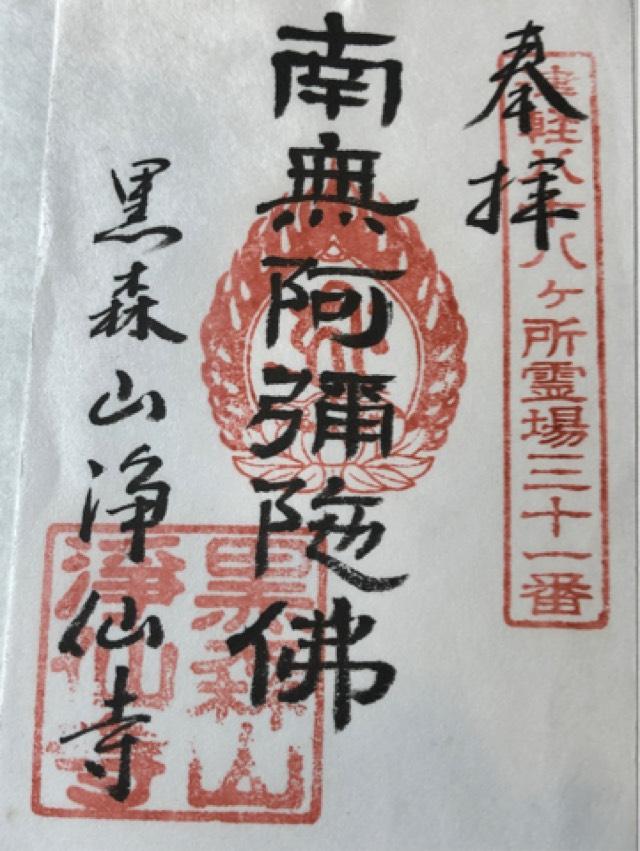 奉拝
津軽八十八ヶ所霊場三十一番
南無阿彌陀佛
黒森山浄仙寺
黒森山
浄仙寺